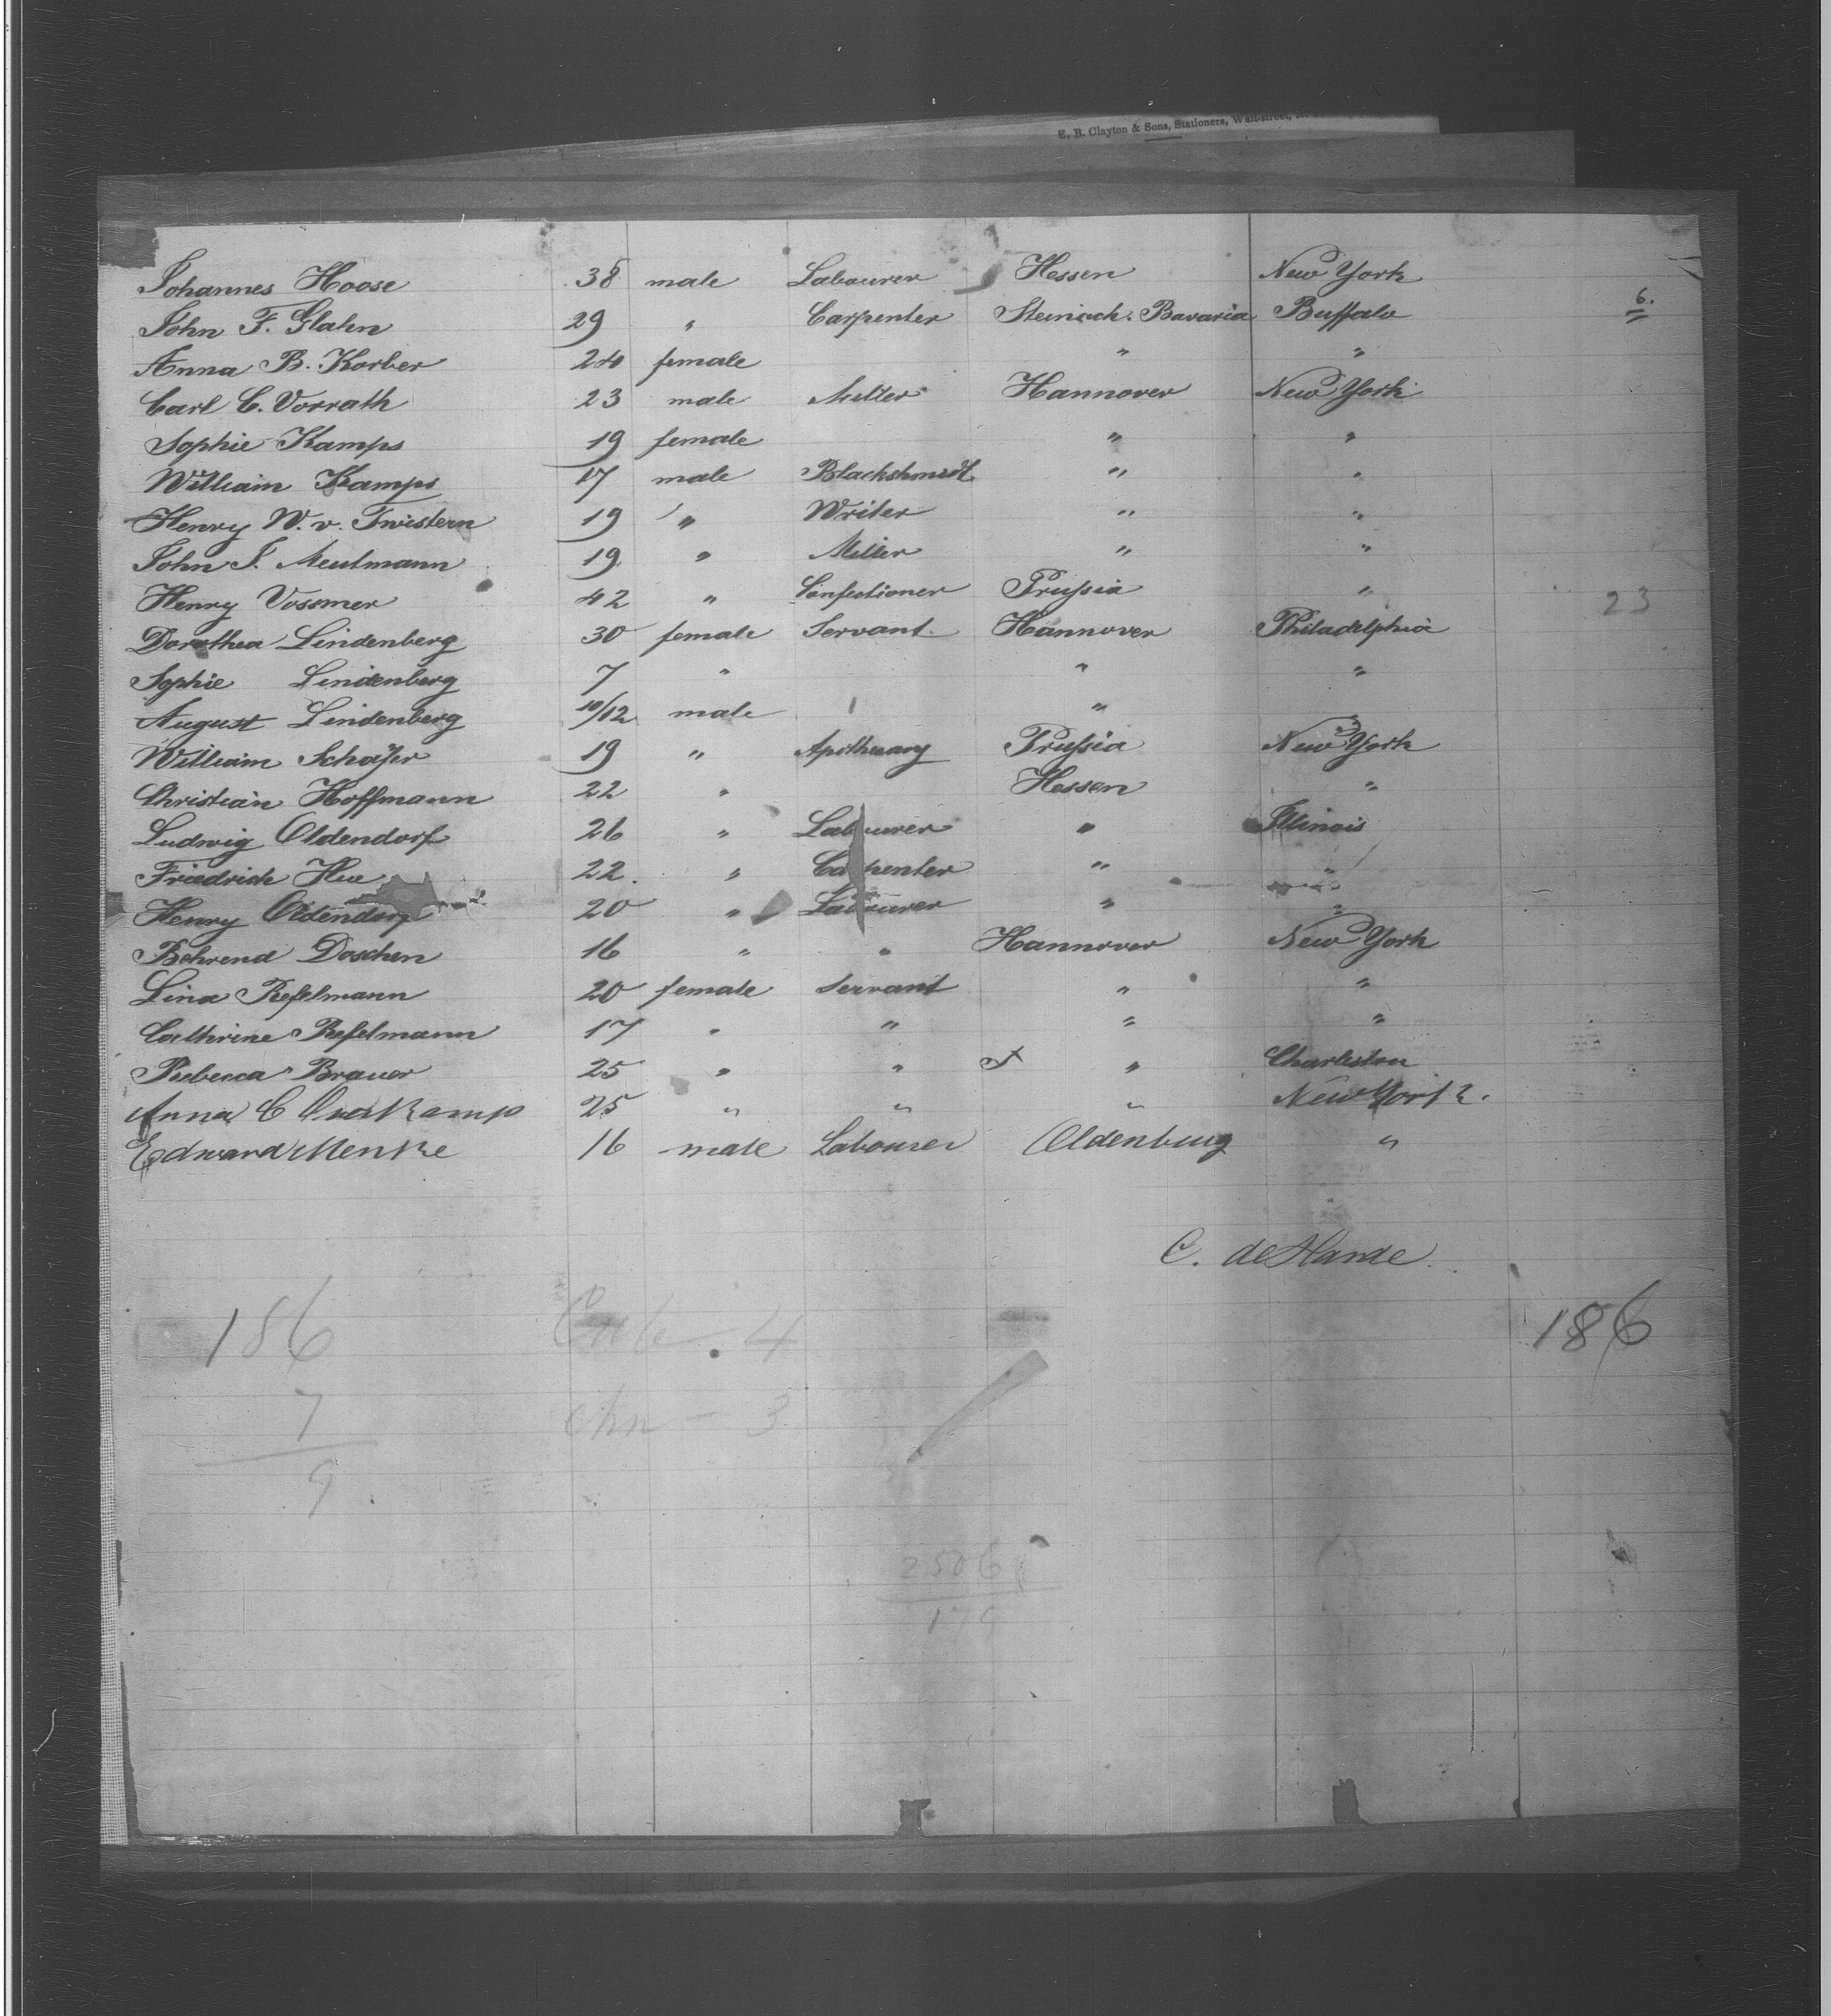 E. B. Clayton & Sons, Stationers, Wall-street,
Johannes Hoose 38 male Labourer Hessen New York
John F. Glahn 29 " Carpenter Bavaria Buffalo 6.
Anna B. Korber 24 female " "
Carl C. Vorrath 23 male Miller Hannover New York
Sophie Kamps 19 female " "
William Kamps 17 male Blackshmidt " "
Henry W. v. Twistern 19 " Writer " "
John J. Meulmann 19 " Miller " "
Henry Vossmer 42 " Confectioner Prussia " 23
Dorothea Lindenberg 30 female Servant Hannover Philadelphia
Sophie Lindenberg 7 " " "
August Lindenberg 10/12 male "
William Schäfer 19 " Apothecary Prussia New York
Christian Hoffmann 22 " Hessen "
Ludwig Oldendorf 26 " Labourer " Illinois
Friedrich 22. " Carpenter " "
Henry Oldendorf 20 " Labourer " "
Behrend Doschen 16 " " Hannover New York
Lina Resselmann 20 female Servant " "
Cathrine Resselmann 17 " " " "
Rebecca Brauer 25 " " " Charleston
Anna C 25 " " " New York.
Edward Menke 16 male Labourer Oldenburg "
C. de Harde.
186 4 186
7 chn - 3
9
2506
179